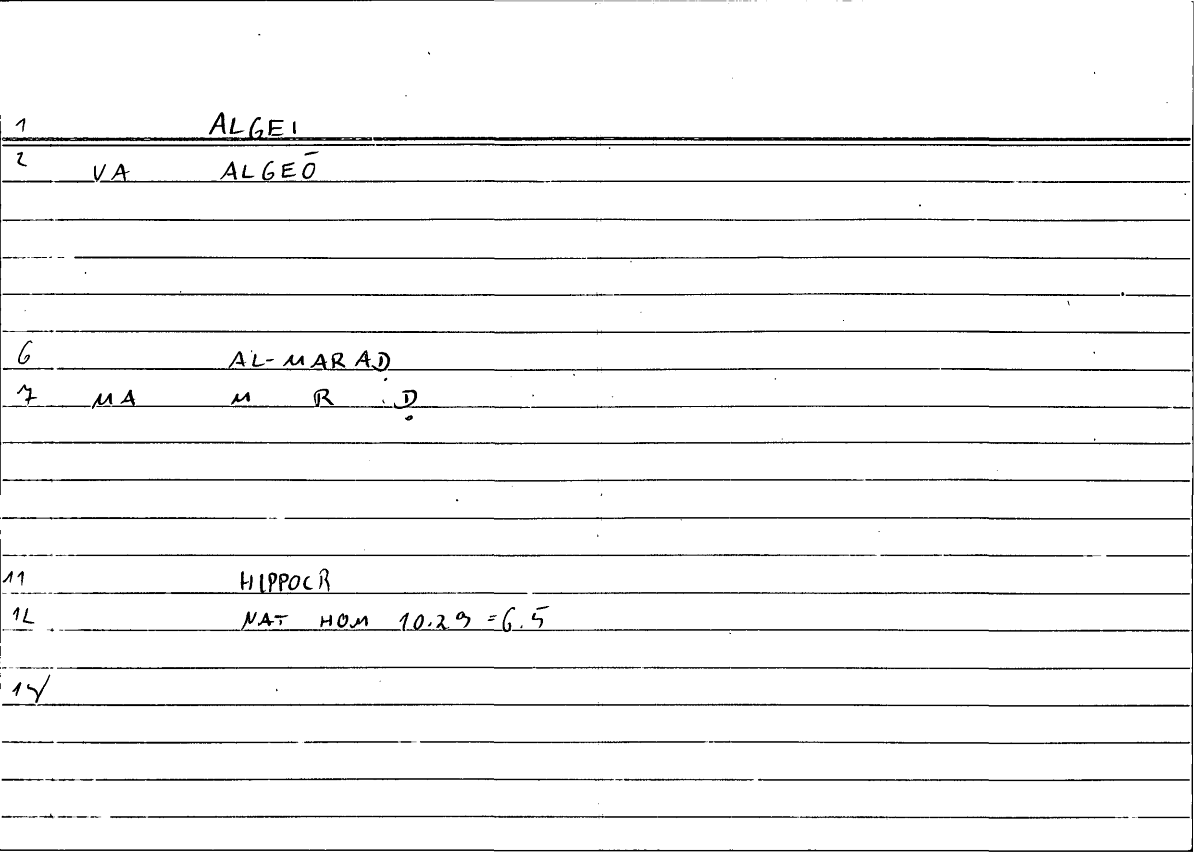 1 ALGEI
2 VA ALGEŌ
6 AL-MARAḌ
7 MA M R Ḍ
11 HIPPOCR
12 NAT HOM 10.29 = 6.5